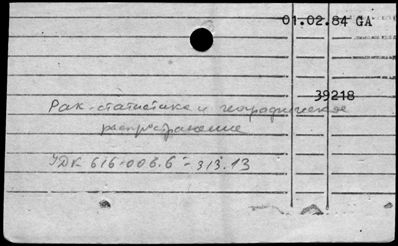 01.02.84 GA
39218
Рак-статистика и географическое
распространение
УДК 616-006.6-313.13